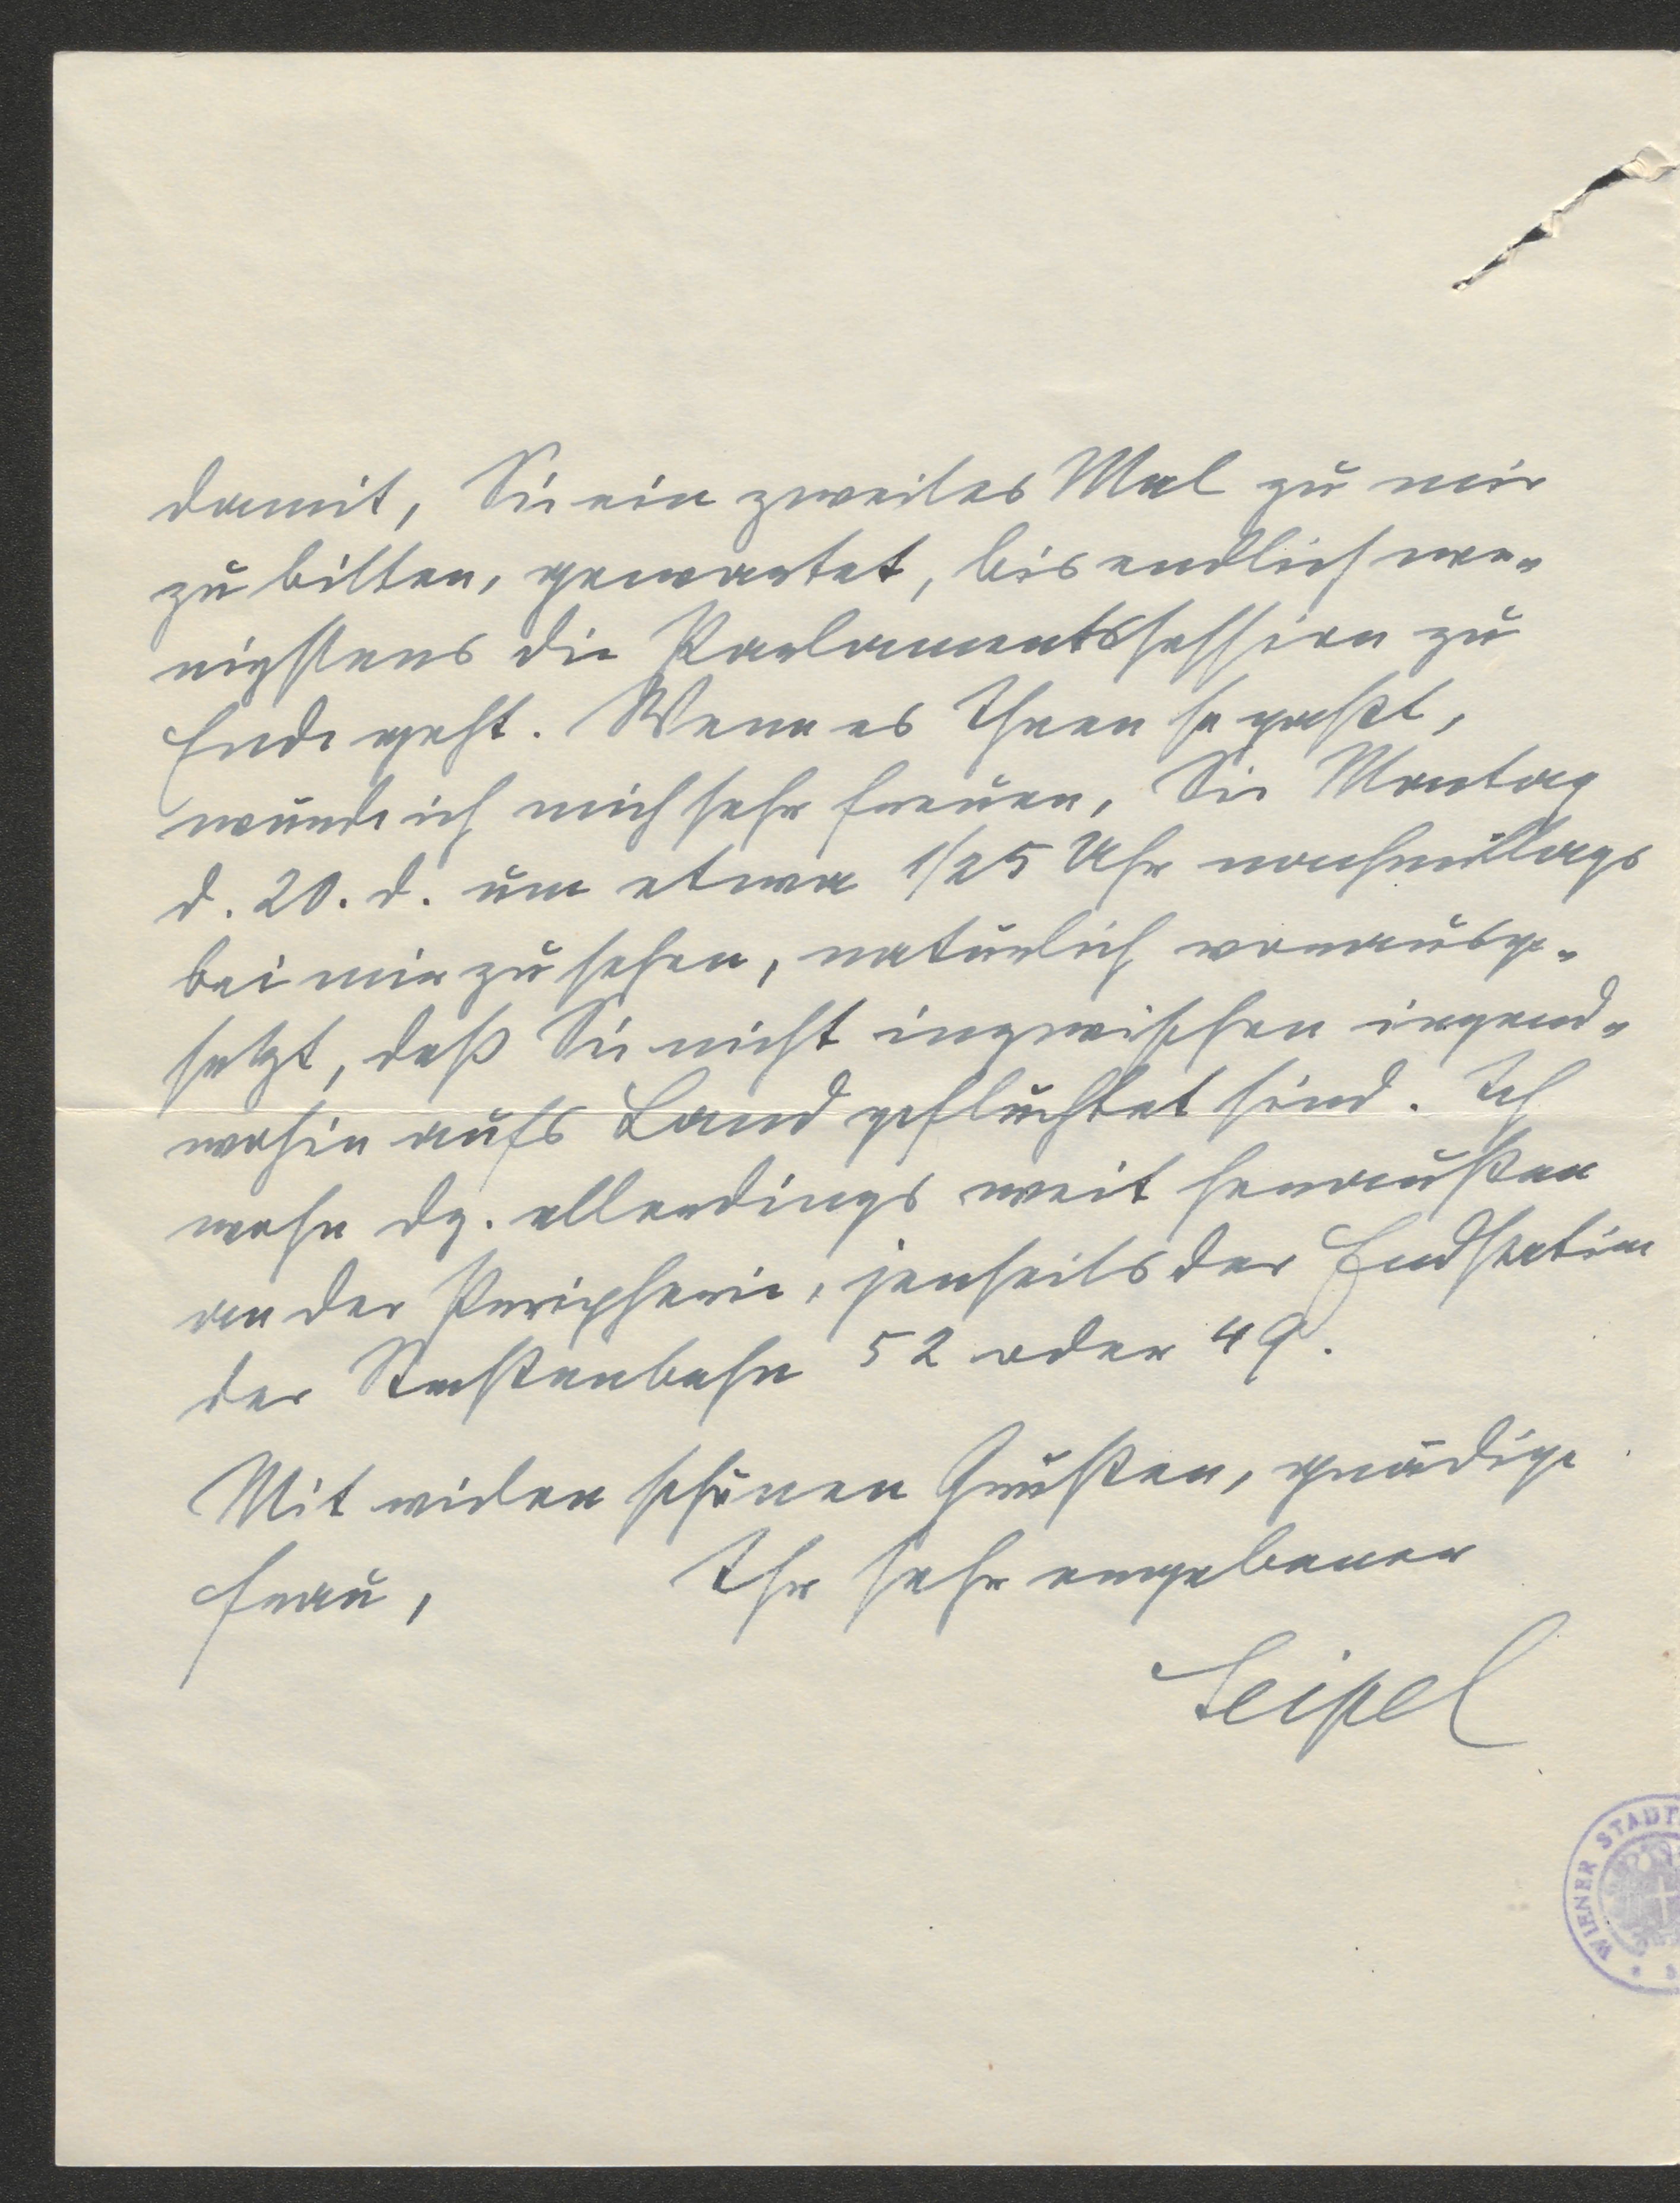 damit, Sie ein zweites Mal zu mir
zu bitten, gewartet, bis endlich we-
nigstens die Parlamentssession zu
Ende geht. Wenn es Ihnen so paßt,
würde ich mich sehr freuen, Sie Montag
d. 20. d. um etwa 1/2 5 Uhr nachmittags
bei mir zu sehen, natürlich vorausge-
setzt, daß Sie nicht inzwischen irgend-
wohin aufs Land geflüchtet sind. Ich
wohne dz. allerdings weit heraußen
an der Peripherie, jenseits der Endstation
der Straßenbahn 52 oder 49.
Mit vielen schönen Grüßen, gnädige
Frau, Ihr sehr ergebener
Seipel
WIENER STADT